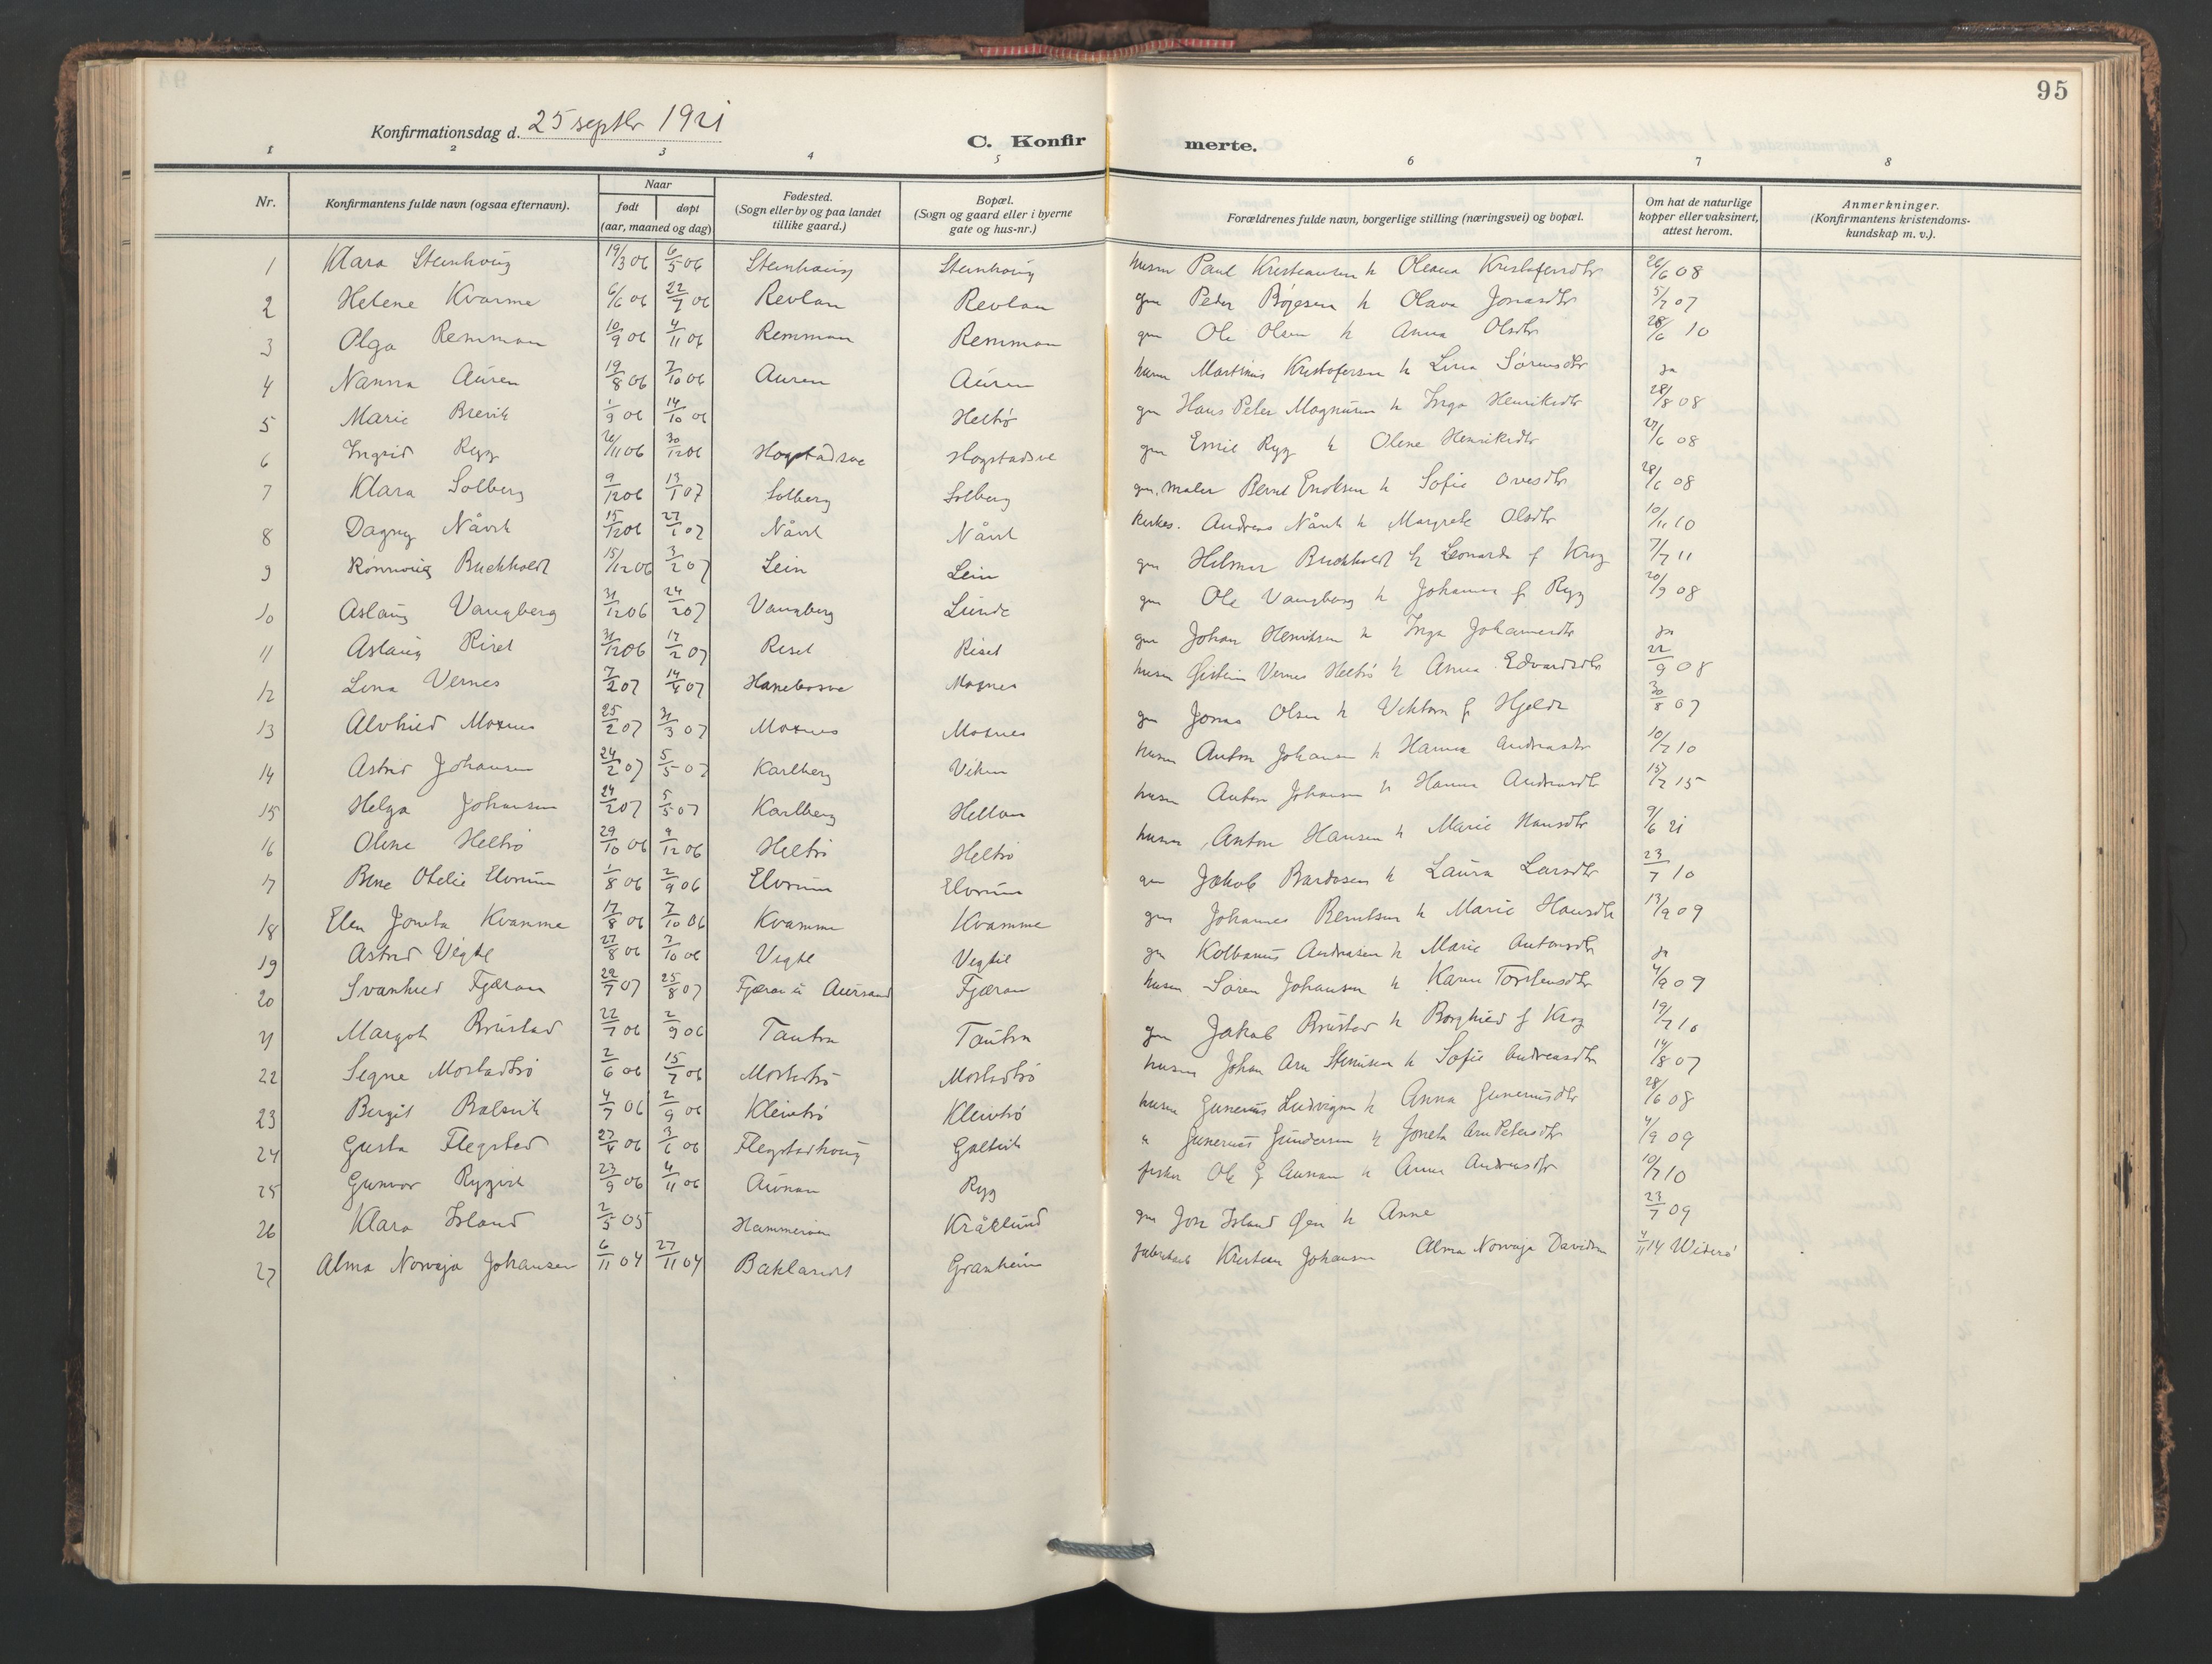 95
Konfirmationsdag d. 25 septbr 1921
C. Konfirmerte.
1 2 3 4 5 6 7 8
Nr. Konfirmantens fulde navn (ogsaa efternavn). Naar født døpt (aar, maaned og dag) Fødested. (Sogn eller by og paa landet tillike gaard.) Bopæl. (Sogn og gaard eller i byerne gate og hus-nr.) Forældrenes fulde navn, borgerlige stilling (næringsvei) og bopæl. Om hat de naturlige kopper eller vaksinert, attest herom. Anmerkninger. (Konfirmantens kristendoms-kundskap m. v.).
1 Klara Steinhoug 19/3 06 6/5 06 Steinhaug Steinhoug husm Paul Kristiansen h Oleana Kristofersdtr 26/6 08
2 Helene Kvarme 6/6 06 22/7 06 Revlan Revlan gm Peder Bøjesen h Olava Jonasdtr 5/7 07
3 Olga Remman 10/9 06 4/11 06 Remman Remman gm Ole Olsen h Anna Olsdtr 28/6 10
4 Nanna Auren 19/8 06 7/10 06 Auren Auren husm Martinus Kristofersen h Lina Sørensdtr ja
5 Marie Brevik 1/9 06 14/10 06 Heltrø gm Hans Peter Magnusen h Inga Henriksdtr 28/8 08
6 Ingrid Ryg 26/11 06 30/12 06 Hogstadsve Hogstadsve gm Emil Ryg h Oline Henriksdtr 27/6 08
7 Klara Solberg 9/12 06 13/1 07 Solberg Solberg gm. maler Bernt Enoksen h Sofie Ovesdtr 28/6 08
8 Dagny Nåvik 15/12 06 27/1 07 Nåvik Nåvik kirkes. Andreas Nåvik h Margrete Olsdtr 10/11 10
9 Rønnoug Buckholdt 15/12 06 3/2 07 Lein Lein gm Hilmar Buckholdt h Leonarda f Krog 7/7 11
10 Aslaug Vangberg 31/12 06 24/2 07 Vangberg Lunde gm Ole Vangberg h Johanna f. Ryg 20/9 08
11 Aslaug Riset 31/12 06 17/2 07 Riset Riset gm Johan Henriksen h Inga Johannesdtr ja
12 Lina Vernes 7/2 07 14/4 07 Hanebosve Moxnes husm Vernes Heltrø h Anna Edvardsdtr 22/9 08
13 Alvhild Moxnes 25/2 07 31/3 07 Moxnes Moxnes gm Jonas Olsen h f Hjelde 30/8 07
14 Astrid Johansen 24/2 07 5/5 07 Karlberg Viken husm Anton Johansen h Hanna Andreasdtr 10/7 10
15 Helga Johansen 24/2 07 5/5 07 Karlberg Hellan husm Anton Johansen h Hanna Andreasdtr 15/7 15
16 Oline Heltrø 29/10 06 9/12 06 Heltrø Heltrø husm Anton Hansen h Marie Hansdtr 9/6 21
17 Bine Otelie Elvrum 1/8 06 2/9 06 Elvrum Elvrum gm Jakob Bardosen h Laura Larsdtr 23/7 10
18 Elen Joneta Kvamme 17/8 06 7/10 06 Kvamme Kvamme gm Johannes Berntsen h Marie Hansdtr 13/9 09
19 Astrid Vigtil 27/8 06 7/10 06 Vigtil Vigtil gm Kolbanus Andreasen h Marie Antonsdtr ja
20 Svanhild Fjæran 22/7 07 25/8 07 Fjæran Aursand Fjæran husm Søren Johansen h Karen Torstensdtr 4/9 09
21 Margot Brustad 22/7 06 2/9 06 Tautra Tautra gm Jakob Brustad h Borghild f Krog 19/7 10
22 Signe Mostadtrø 2/6 06 15/7 06 Mostadtrø Mostadtrø husm Johan Arn h Sofie Andreasdtr 14/8 07
23 Bergit Balsvik 4/7 06 2/9 06 Kleivtrø Kleivtrø husm Gunerius Ludvigsen h Anna Guneriusdtr 28/6 08
24 Gusta Flegstad 27/4 06 3/6 06 Flegstadhoug Galtvik " Gunerius Gundersen h Joneta Arn Petersdtr 4/9 09
25 Gunvor Rygvik 23/9 06 4/11 06 Aunan Ryg fisker Ole G Aunan h Anna Andreasdtr 10/7 10
26 Klara Island 2/5 05 Hammeren Kråklund gm Jon Island Øien h Anne 23/7 09
27 Alma Norvega Johansen 6/11 04 27/11 04 Baklandet Granheim fabrikarb Kristian Johansen Alma Norvega Davidsen 4/11 14 Widerø